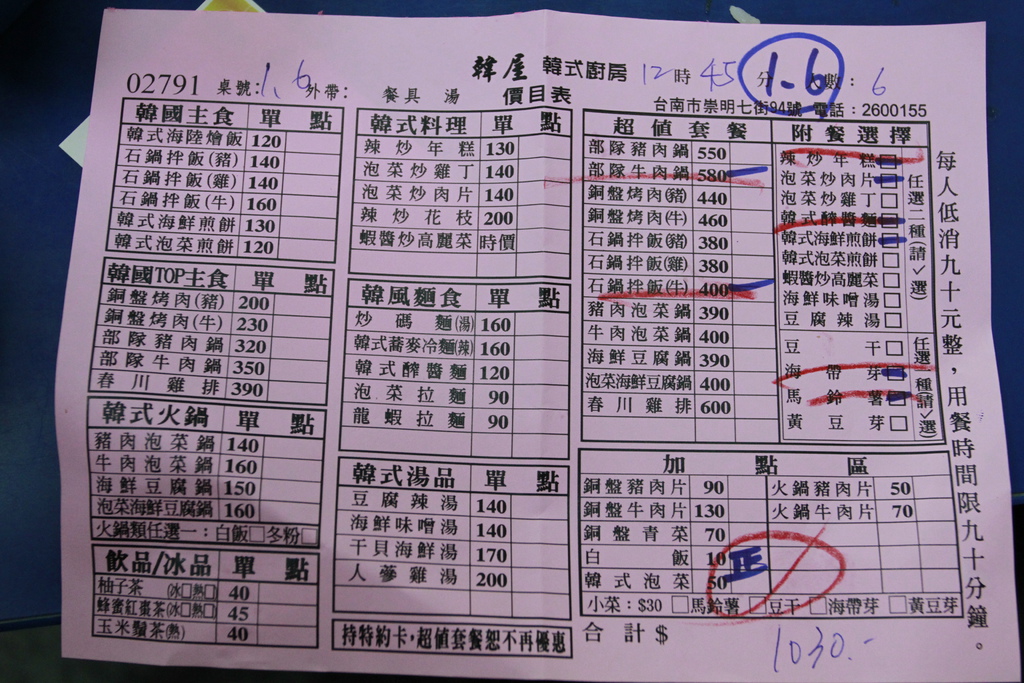 韓屋 韓式廚房 12時 45分 1.6 人數：6
02791 桌號：1.6 外帶： 餐具 湯 價目表 台南市崇明七街94號 電話：2600155
韓國主食 單 點
韓式海陸燴飯 120
石鍋拌飯(豬) 140
石鍋拌飯(雞) 140
石鍋拌飯(牛) 160
韓式海鮮煎餅 130
韓式泡菜煎餅 120
韓國TOP主食 單 點
銅盤烤肉(豬) 200
銅盤烤肉(牛) 230
部隊豬肉鍋 320
部隊牛肉鍋 350
春川雞排 390
韓式火鍋 單 點
豬肉泡菜鍋 140
牛肉泡菜鍋 160
海鮮豆腐鍋 150
泡菜海鮮豆腐鍋 160
火鍋類任選一：白飯□冬粉□
飲品/冰品 單 點
柚子茶 (冰□熱□) 40
蜂蜜紅棗茶(冰□熱□) 45
玉米鬚茶(熱) 40
韓式料理 單 點
辣炒年糕 130
泡菜炒雞丁 140
泡菜炒肉片 140
辣炒花枝 200
蝦醬炒高麗菜 時價
韓風麵食 單 點
炒碼麵(湯) 160
韓式蕎麥冷麵(辣) 160
韓式醡醬麵 120
泡菜拉麵 90
龍蝦拉麵 90
韓式湯品 單 點
豆腐辣湯 140
海鮮味噌湯 140
干貝海鮮湯 170
人蔘雞湯 200
持特約卡，超值套餐恕不再優惠
超值套餐
部隊豬肉鍋 550
部隊牛肉鍋 580
銅盤烤肉(豬) 440
銅盤烤肉(牛) 460
石鍋拌飯(豬) 380
石鍋拌飯(雞) 380
石鍋拌飯(牛) 400
豬肉泡菜鍋 390
牛肉泡菜鍋 400
海鮮豆腐鍋 390
泡菜海鮮豆腐鍋 400
春川雞排 600
附餐選擇
辣炒年糕□
泡菜炒肉片□
泡菜炒雞丁□
韓式醡醬麵□
韓式海鮮煎餅□
韓式泡菜煎餅□
蝦醬炒高麗菜□
海鮮味噌湯□
豆腐辣湯□
任選二種(請✓選)
豆干□
海帶芽□
馬鈴薯□
黃豆芽□
任選一種(請✓選)
加點區
銅盤豬肉片 90 火鍋豬肉片 50
銅盤牛肉片 130 火鍋牛肉片 70
銅盤青菜 70
白飯 10 正
韓式泡菜 50
小菜：$30 □馬鈴薯 □豆干 □海帶芽 □黃豆芽
合計$ 1030.-
每人低消九十元整，用餐時間限九十分鐘。